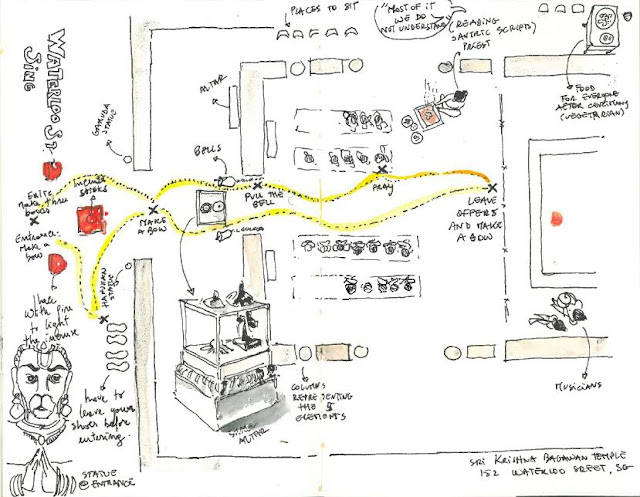 PLACES TO SIT
"MOST OF IT
WE DO
NOT UNDERSTAND"
(READING
SANTRIC SCRIPTS)
PRIEST
FOOD
FOR EVERYONE
AFTER CEREMONY
(VEGETARIAN)
WATERLOO ST.
SING
GARUDA
STATUE
ALTAR
BELLS
Exit:
make three
bows
INCENSE
STICKS
MAKE
A BOW
PULL THE
BELL
PRAY
LEAVE
OFFERS
AND MAKE
A BOW
Entrance:
Make a
bow
HANUMAN
STATUE
with fire
to light
the incense
have to
leave your
shoes before
entering.
COLUMNS
REPRESENTING
THE 5
ELEMENTS
ALTAR
MUSICIANS
STATUE
@ ENTRANCE
SRI KRISHNA BAGAWAN TEMPLE
152 WATERLOO SREET, SG